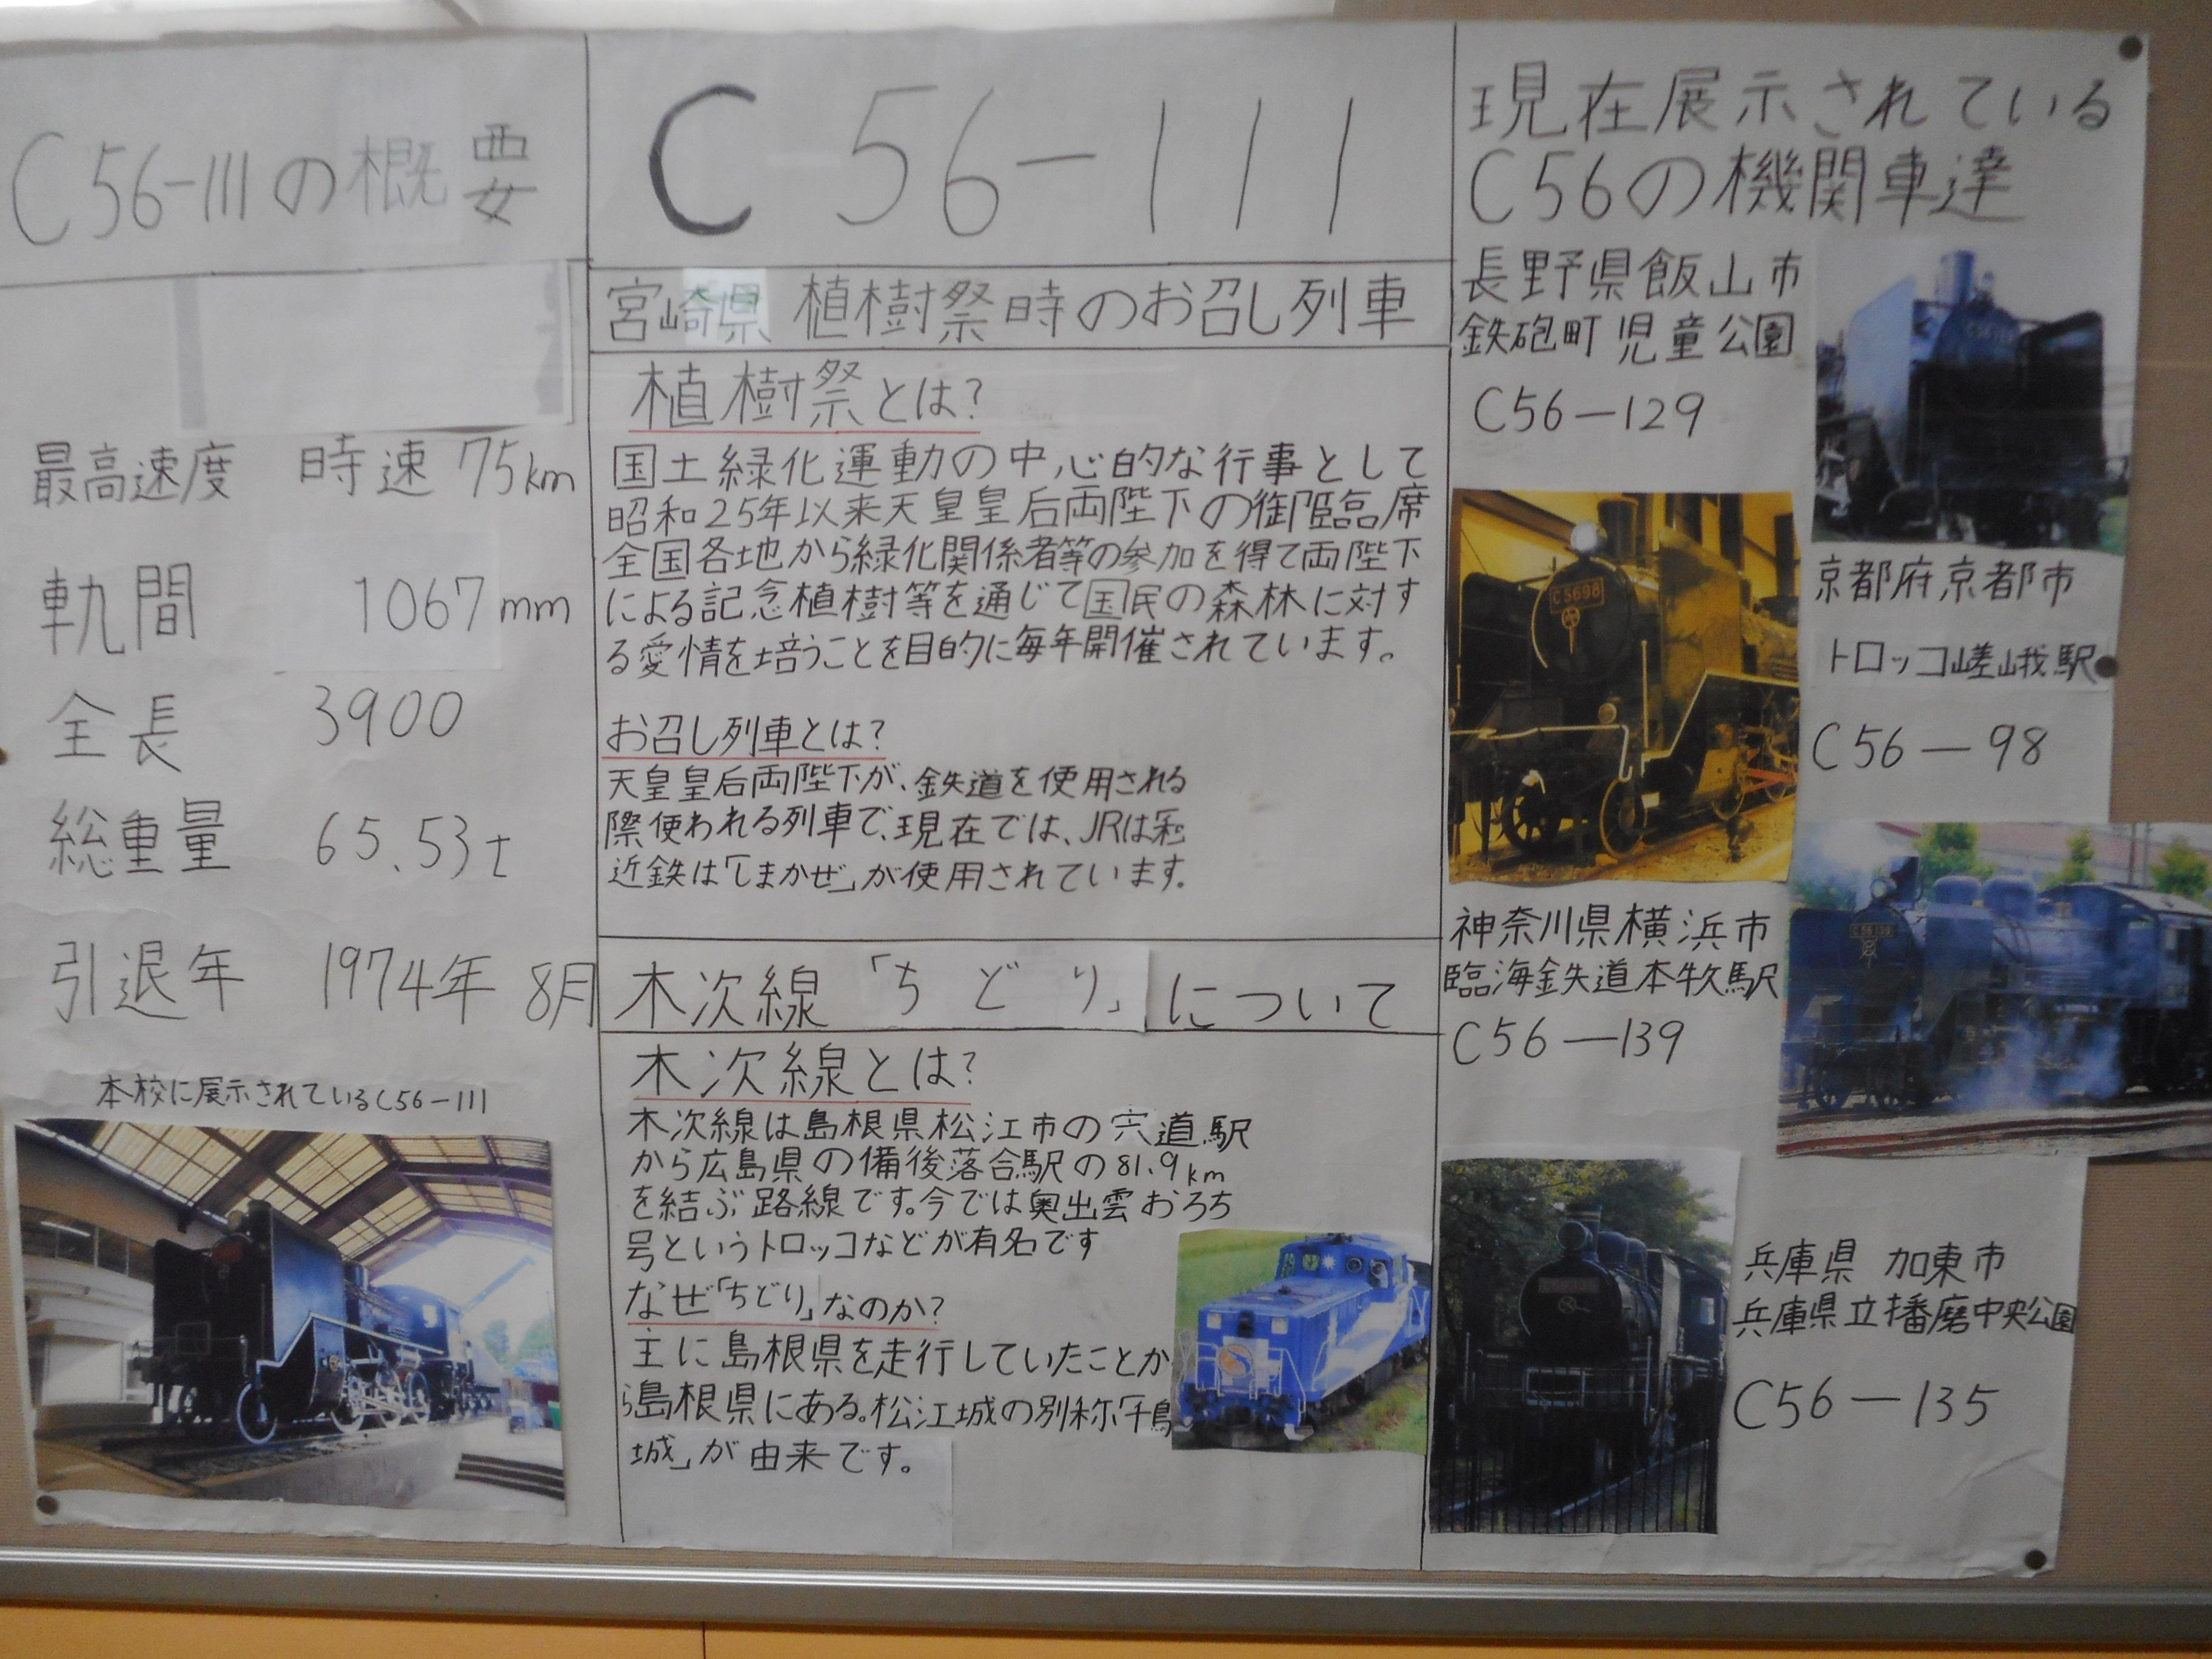 C56-111の概要
最高速度 時速 75km
軌間 1067mm
全長 3900
総重量 65.53t
引退年 1974年 8月
本校に展示されているC56-111
C 56-111
宮崎県 植樹祭時のお召し列車
植樹祭とは?
国土緑化運動の中心的な行事として
昭和25年以来天皇皇后両陛下の御臨席
全国各地から緑化関係者等の参加を得て両陛下
による記念植樹等を通じて国民の森林に対す
る愛情を培うことを目的に毎年開催されています。
お召し列車とは?
天皇皇后両陛下が、鉄道を使用される
際使われる列車で、現在では、JRは和
近鉄は「しまかぜ」が使用されています。
木次線「ちどり」について
木次線とは?
木次線は島根県松江市の宍道駅
から広島県の備後落合駅の81.9km
を結ぶ路線です。今では奥出雲おろち
号というトロッコなどが有名です
なぜ「ちどり」なのか?
主に島根県を走行していたことか
ら島根県にある。松江城の別称「千鳥
城」が由来です。
現在展示されている
C56の機関車達
長野県飯山市
鉄砲町児童公園
C56-129
C5698
京都府京都市
トロッコ嵯峨駅
C56-98
神奈川県横浜市
臨海鉄道本牧駅
C56-139
C56139
兵庫県 加東市
兵庫県立播磨中央公園
C56-135